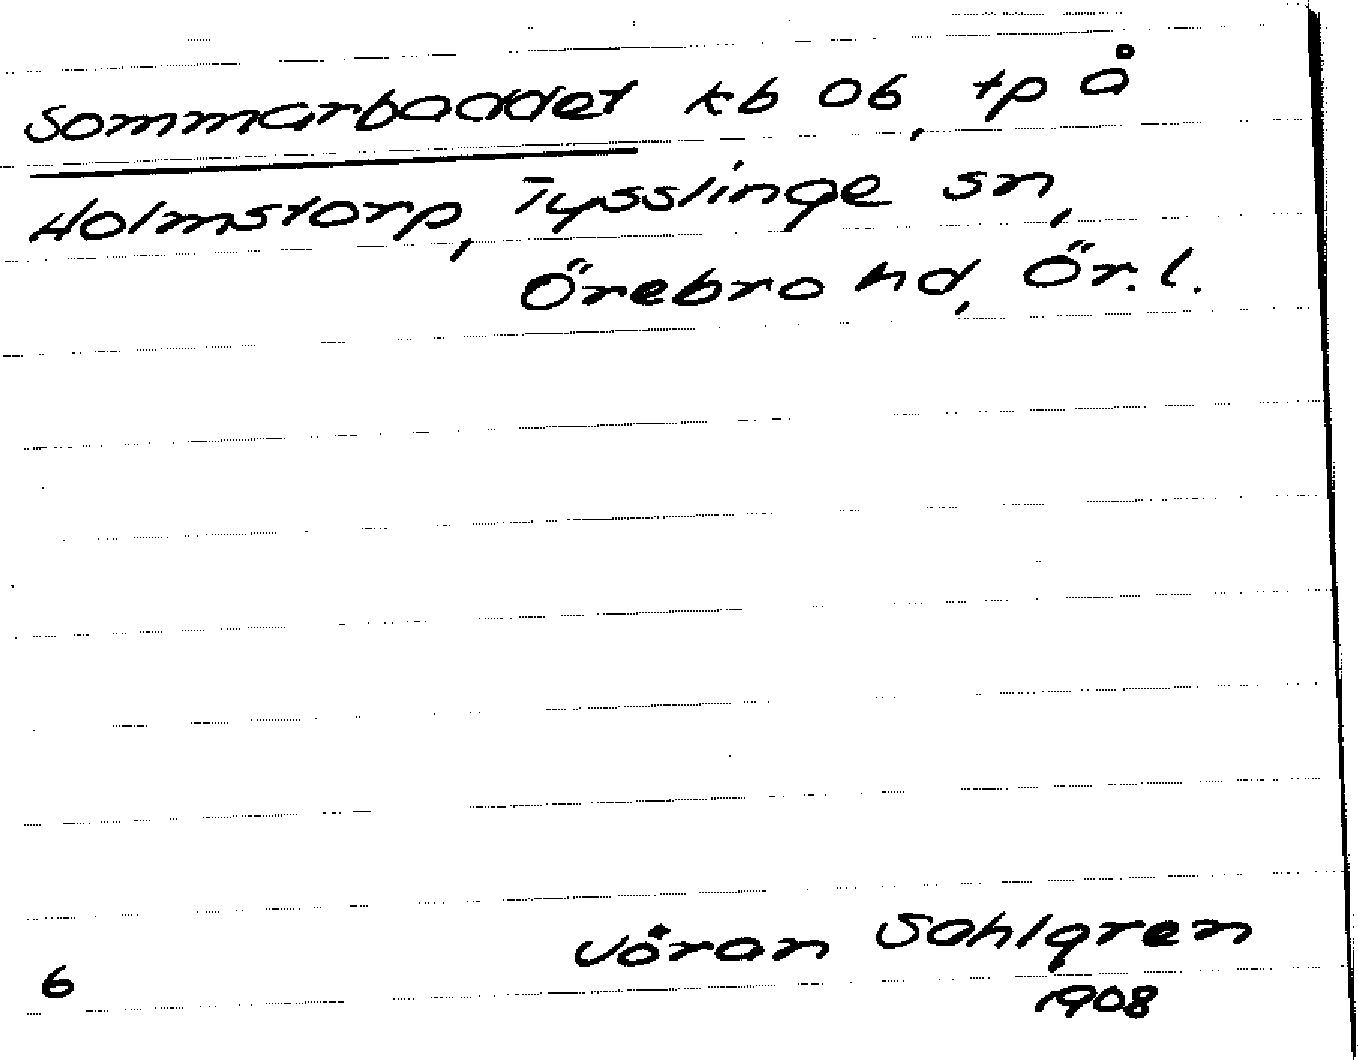 Sommarbaddet kb 06, tp å
Holmstorp, Tysslinge sn,
Örebro hd, Ör. l.
Jöran Sahlgren
6
1908